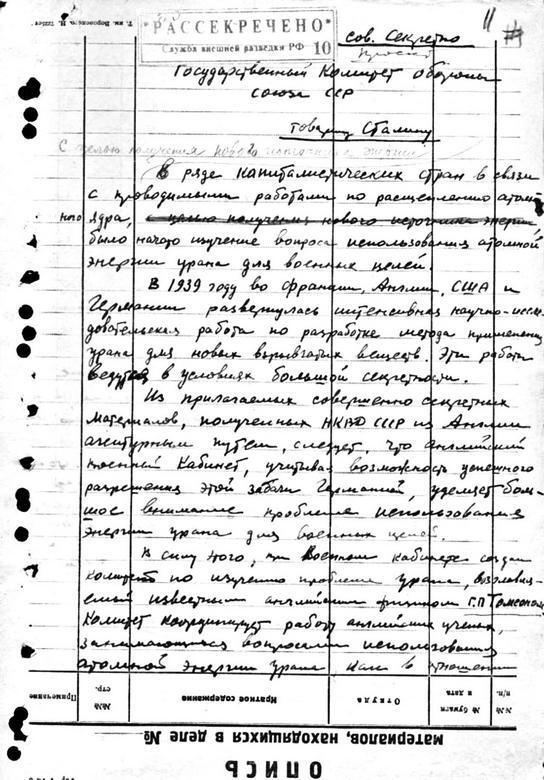 "РАССЕКРЕЧЕНО"
Служба внешней разведки РФ 10
11
сов. Секретно
Государственный Комитет Обороны
Союза ССР
товарищу Сталину
с целью получения нового источника энергии
В ряде капиталистических стран в связи
с проводимыми работами по расщеплению атом
ного ядра, с целью получения нового источника энергии,
было начато изучение вопроса использования атомной
энергии урана для военных целей.
В 1939 году во Франции, Англии, США и
Германии развернулась интенсивная научно-иссле
довательская работа по разработке метода применения
урана для новых взрывчатых веществ. Эти работы
ведутся в условиях большой секретности.
Из прилагаемых совершенно секретных
материалов, полученных НКВД СССР из Англии
агентурным путем, следует, что английский
Военный Кабинет, учитывая возможность успешного
разрешения этой задачи Германией, уделяет боль-
шое внимание проблеме использования
энергии урана для военных целей.
В силу этого, при Военном кабинете создан
комитет по изучению проблемы урана, возглавля-
емый известным английским физиком Г.П. Томсоном.
Комитет координирует работу английских ученых,
занимающихся вопросами использования
атомной энергии урана как в отношении
Примечание
№№ стр.
Краткое содержание
Откуда
№ бумаги и дата
№№ п/п.
материалов, находящихся в деле №
ОПИСЬ